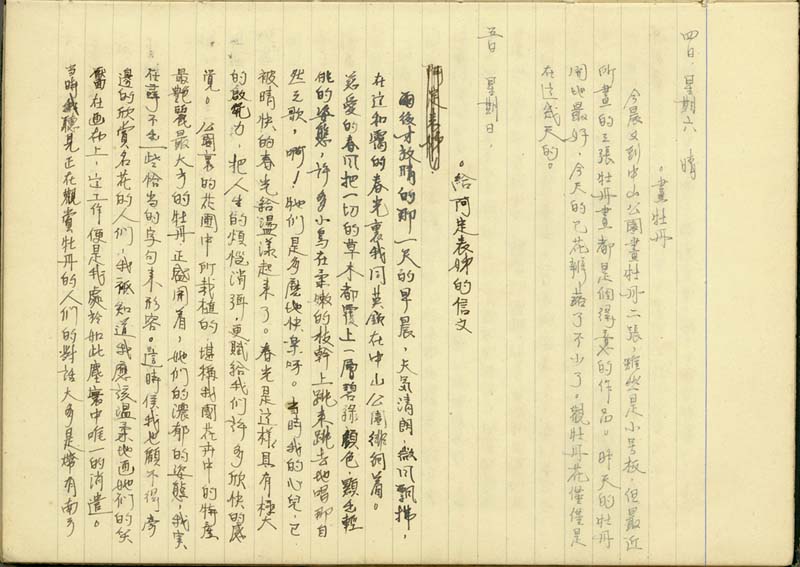 四日、星期六 晴
。畫牡丹
今晨又到中山公園畫牡丹二張，雖然是小号板，但最近
所畫的三張牡丹畫都是個得意的作品。昨天的牡丹
開地最好，今天的已花瓣落了不少了。觀牡丹花僅僅是
在這幾天的。
五日 星期日、
。給阿定表姊的信文
雨後才放晴的那一天的早晨，天気清朗，微風飄拂，
在這和靄的春光裏我同英 在中山公園徘徊着。
慈愛的春風把一切的草木都覆上一層碧綠顏色，顯毛輕
的姿態，許多小鳥在柔嫩的枝幹上跳來跳去地唱那自
然之歌，啊！牠們是多麼地快樂呀。當時我的心兒，已
被晴快的春光給溫漾起來了。春光是這樣具有極大
的啟 力，把人生的煩惱消弭，更賦給我们許多欣快的感
覺。 公園裏的花圃中所栽植的，堪稱我國花卉中的特產
最艷麗最大方的牡丹正盛開着，她们的濃郁的姿態，我实
在尋不出一些恰当的字句來形容。這時候我也顧不得旁
邊的欣賞名花的人们，我祇知道我應該溫柔地画她们的矣
留在画布上，這工作便是我處於如此塵寰中唯一的消遣。
當時我聽見正在觀賞牡丹的人们的對話大多是帶有南方